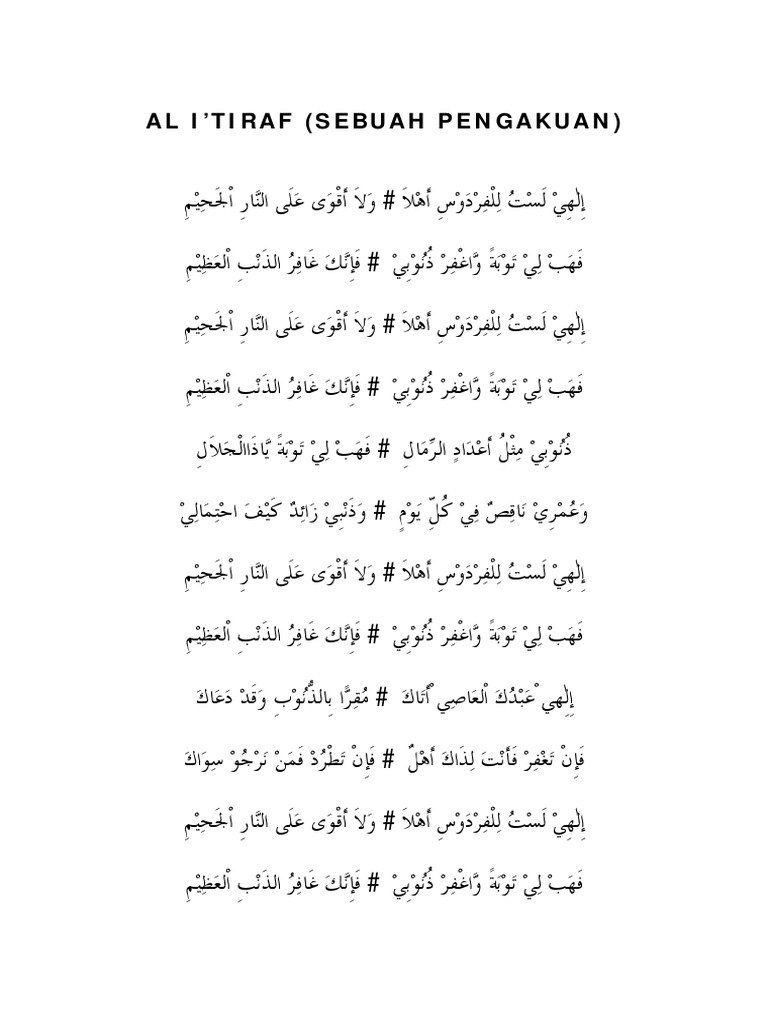 AL I'TIRAF (SEBUAH PENGAKUAN)
إِلٰهِيْ لَسْتُ لِلْفِرْدَوْسِ أَهْلاَ # وَلاَ أَقْوَى عَلَى النَّارِ اْلجَحِيْمِ
فَهَبْ لِيْ تَوْبَةً وَّاغْفِرْ ذُنُوْبِيْ # فَإِنَّكَ غَافِرُ الذَنْبِ اْلعَظِيْمِ
إِلٰهِيْ لَسْتُ لِلْفِرْدَوْسِ أَهْلاَ # وَلاَ أَقْوَى عَلَى النَّارِ اْلجَحِيْمِ
فَهَبْ لِيْ تَوْبَةً وَّاغْفِرْ ذُنُوْبِيْ # فَإِنَّكَ غَافِرُ الذَنْبِ اْلعَظِيْمِ
ذُنُوْبِيْ مِثْلُ أَعْدَادٍ الرِّمَالِ # فَهَبْ لِيْ تَوْبَةً يَّاذَاالْجَلاَلِ
وَعُمْرِيْ نَاقِصٌ فِيْ كُلِّ يَوْمٍ # وَذَنْبِيْ زَائِدٌ كَيْفَ احْتِمَالِيْ
إِلٰهِيْ لَسْتُ لِلْفِرْدَوْسِ أَهْلاَ # وَلاَ أَقْوَى عَلَى النَّارِ اْلجَحِيْمِ
فَهَبْ لِيْ تَوْبَةً وَّاغْفِرْ ذُنُوْبِيْ # فَإِنَّكَ غَافِرُ الذَنْبِ اْلعَظِيْمِ
إِلِهِي ْعَبْدُكَ اْلعَاصِي ْأَتَاكَ # مُقِرًّا بِالذُّنُوْبِ وَقَدْ دَعَاكَ
فَإِنْ تَغْفِرْ فَأَنْتَ لِذَاكَ أَهْلٌ # فَإِنْ تَطْرُدْ فَمَنْ نَرْجُوْ سِوَاكَ
إِلٰهِيْ لَسْتُ لِلْفِرْدَوْسِ أَهْلاَ # وَلاَ أَقْوَى عَلَى النَّارِ اْلجَحِيْمِ
فَهَبْ لِيْ تَوْبَةً وَّاغْفِرْ ذُنُوْبِيْ # فَإِنَّكَ غَافِرُ الذَنْبِ اْلعَظِيْمِ